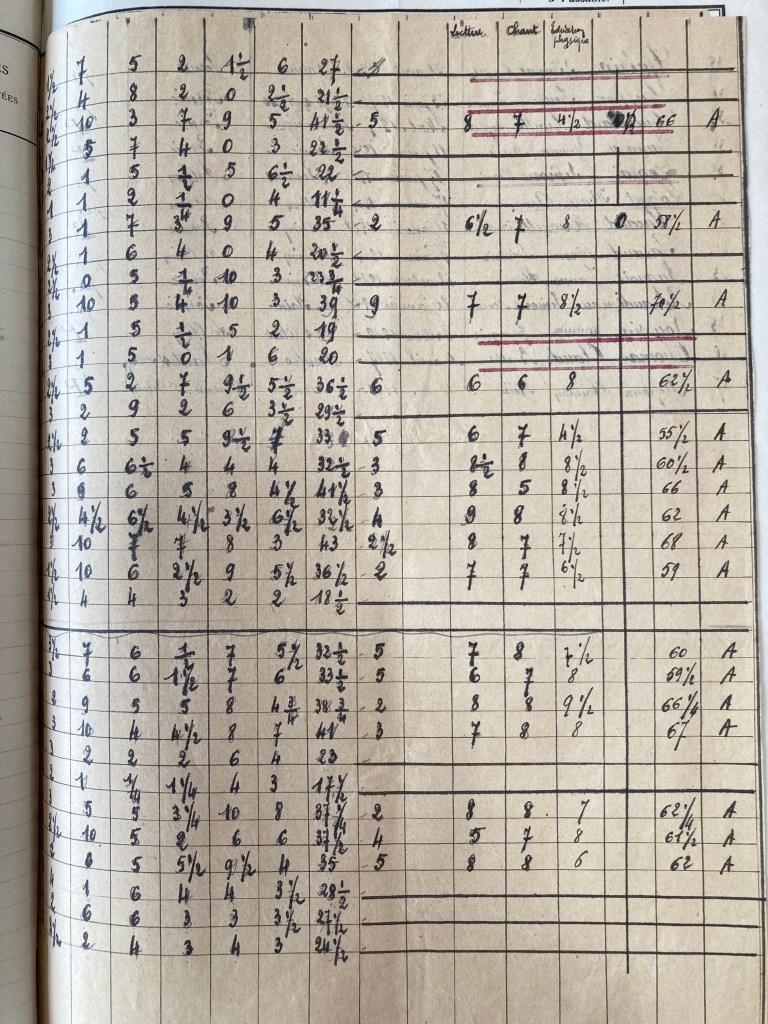 Lecture Chant Education physique
7 5 2 1 1/2 6 27
4 8 2 0 2 1/2 21 1/2
10 3 7 9 5 41 1/2 5 8 7 4 1/2 66 A
5 7 4 0 3 22 1/2
1 5 1/2 5 6 1/2 22
1 2 1/4 0 4 11 1/4
1 7 3 9 5 35 2 6 1/2 7 8 0 58 1/2 A
1 6 4 0 4 20 1/2
0 5 1/4 10 3 23 3/4
10 5 4 10 3 39 9 7 7 8 1/2 70 1/2 A
1 5 1/2 5 2 19
1 5 0 1 6 20
2 1/2 5 2 7 9 1/2 5 1/2 36 1/2 6 6 6 8 62 1/2 A
3 2 9 2 6 3 1/2 29 1/2
2 5 5 9 1/2 7 33 5 6 7 4 1/2 55 1/2 A
3 6 6 1/2 4 4 4 32 1/2 3 8 1/2 8 8 1/2 60 1/2 A
3 9 6 5 8 4 1/2 41 1/2 3 8 5 8 1/2 66 A
4 1/2 6 1/2 4 1/2 3 1/2 6 1/2 32 1/2 4 9 8 8 1/2 62 A
10 7 7 8 3 43 2 1/2 8 7 7 1/2 68 A
10 6 2 1/2 9 5 1/2 36 1/2 2 7 7 6 1/2 59 A
4 4 3 2 2 18 1/2
7 6 1/2 7 5 1/2 32 1/2 5 7 8 7 1/2 60 A
6 6 1 1/2 7 6 33 1/2 5 6 7 8 59 1/2 A
2 9 5 5 8 4 3/4 38 3/4 2 8 8 9 1/2 66 1/4 A
3 10 4 4 1/2 8 7 41 3 7 8 8 67 A
3 2 2 2 6 4 23
2 1 1/4 1 1/4 4 3 17 1/2
3 5 5 3 1/4 10 8 37 1/4 2 8 8 7 62 1/4 A
10 5 2 6 6 37 1/2 4 5 7 8 61 1/2 A
6 5 5 1/2 9 1/2 4 35 5 8 8 6 62 A
4 1 6 4 4 3 1/2 28 1/2
2 6 6 3 3 3 1/2 27 1/2
2 4 3 4 3 24 1/2